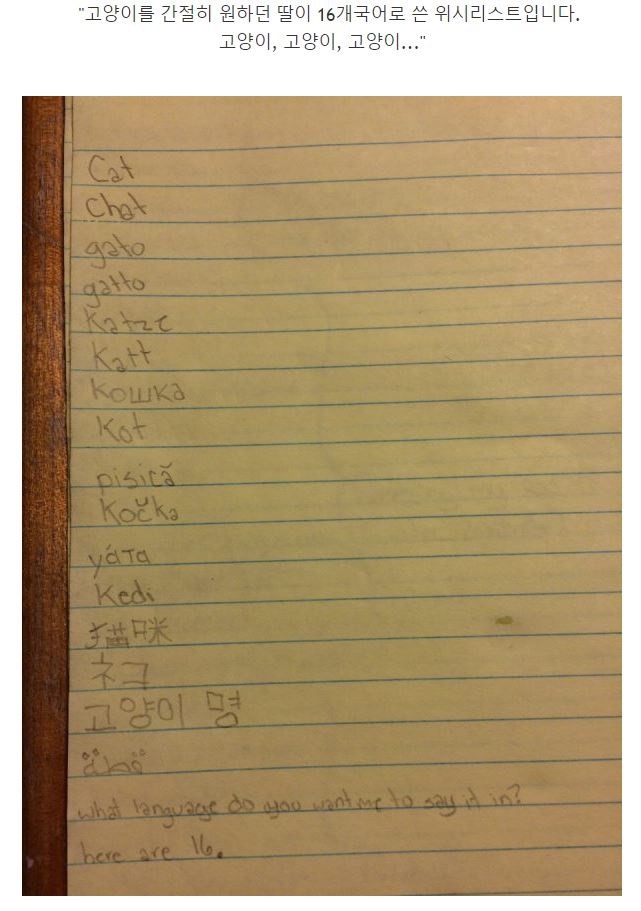 "고양이를 간절히 원하던 딸이 16개국어로 쓴 위시리스트입니다.
고양이, 고양이, 고양이..."
Cat
Chat
gato
gatto
Katze
Katt
Кошка
Kot
pisică
Kočka
γάτα
Kedi
猫咪
ネコ
고양이 명
what language do you want me to say it in?
here are 16.